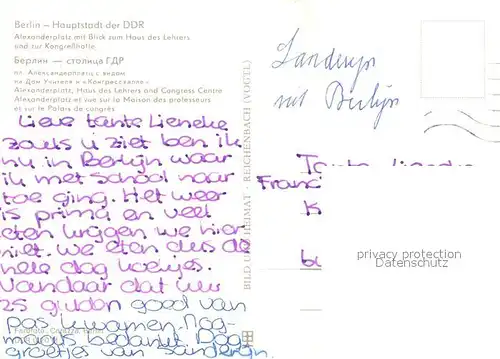 Berlin – Hauptstadt der DDR
Alexanderplatz mit Blick zum Haus des Lehrers
und zur Kongreßhalle
Берлин — столица ГДР
пл. Александерплатц с видом
на Дом Учителя и «Конгрессхалле»
Alexanderplatz, Haus des Lehrers and Congress Centre
Alexanderplatz et vue sur la Maison des professeurs
et sur le Palais de congrès
Lieve tante Lieneke
zoals u ziet ben ik
nu in Berlijn waar
ik met school naar
toe ging. Het weer
is prima en veel
eten krijgen we hier
niet. We eten dus de
hele dag koekjes.
Vandaar dat uw
25 gulden goed van
pas kwamen. Nog-
maals bedankt. Dag
groetjes van Sanderijn.
BILD UND HEIMAT · REICHENBACH (VOGTL)
Sanderijn
uit Berlijn
Tante
Franc
K
bu
privacy protection
Datenschutz